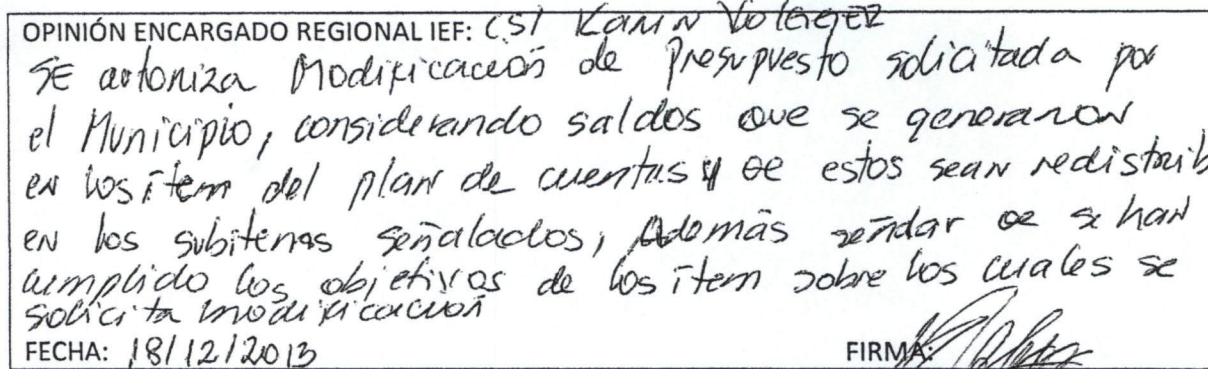 OPINIÓN ENCARGADO REGIONAL IEF: CSI Karin
SE autoriza Modificación de Presupuesto solicitada por
el Municipio, considerando saldos que se generaron
en los ítem del plan de cuentas y qe estos sean redistrib
en los subitems señalados, Además señalar qe se han
cumplido los objetivos de los ítem sobre los cuales se
solicita modificación
FECHA: 18/12/2013 FIRMA: